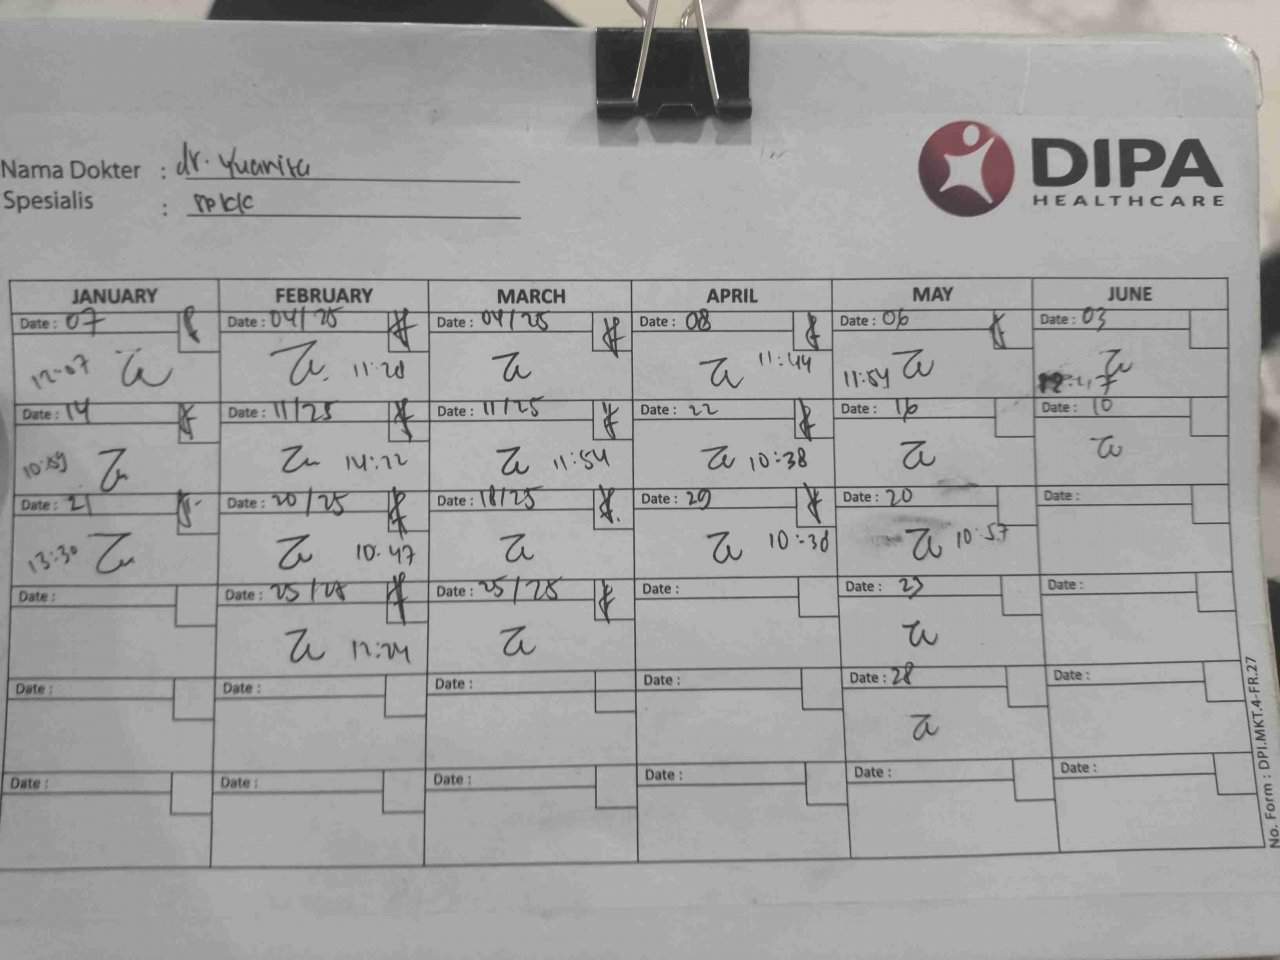 DIPA
HEALTHCARE
Nama Dokter : dr. Yuarita
Spesialis :
JANUARY FEBRUARY MARCH APRIL MAY JUNE
Date : 07 Date : 04/25 Date : 04/25 Date : 08 Date : 06 Date : 03
12-07 11:20 11:44 11:54
Date : 14 Date : 11/25 Date : 11/25 Date : 22 Date : 16 Date : 10
10:59 14:22 11:54 10:38
Date : 21 Date : 20/25 Date : 18/25 Date : 29 Date : 20 Date :
13:30 10:47 10:38 10:57
Date : Date : 25/25 Date : 25/25 Date : Date : 23 Date :
12:24
Date : Date : Date : Date : Date : 28 Date :
Date : Date : Date : Date : Date : Date :
No. Form : DPI.MKT.4-FR.27